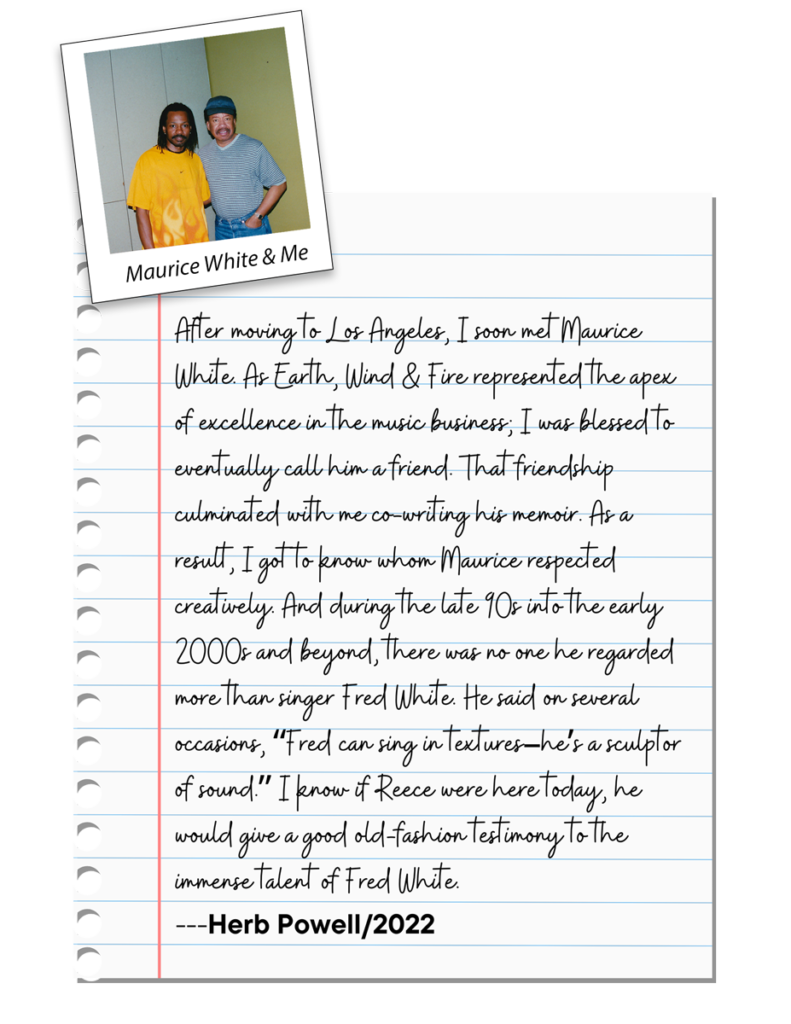 Maurice White & Me
After moving to Los Angeles, I soon met Maurice
White. As Earth, Wind & Fire represented the apex
of excellence in the music business; I was blessed to
eventually call him a friend. That friendship
culminated with me co-writing his memoir. As a
result, I got to know whom Maurice respected
creatively. And during the late 90s into the early
2000s and beyond, there was no one he regarded
more than singer Fred White. He said on several
occasions, “Fred can sing in textures—he's a sculptor
of sound.” I know if Reece were here today, he
would give a good old-fashion testimony to the
immense talent of Fred White.
---Herb Powell/2022